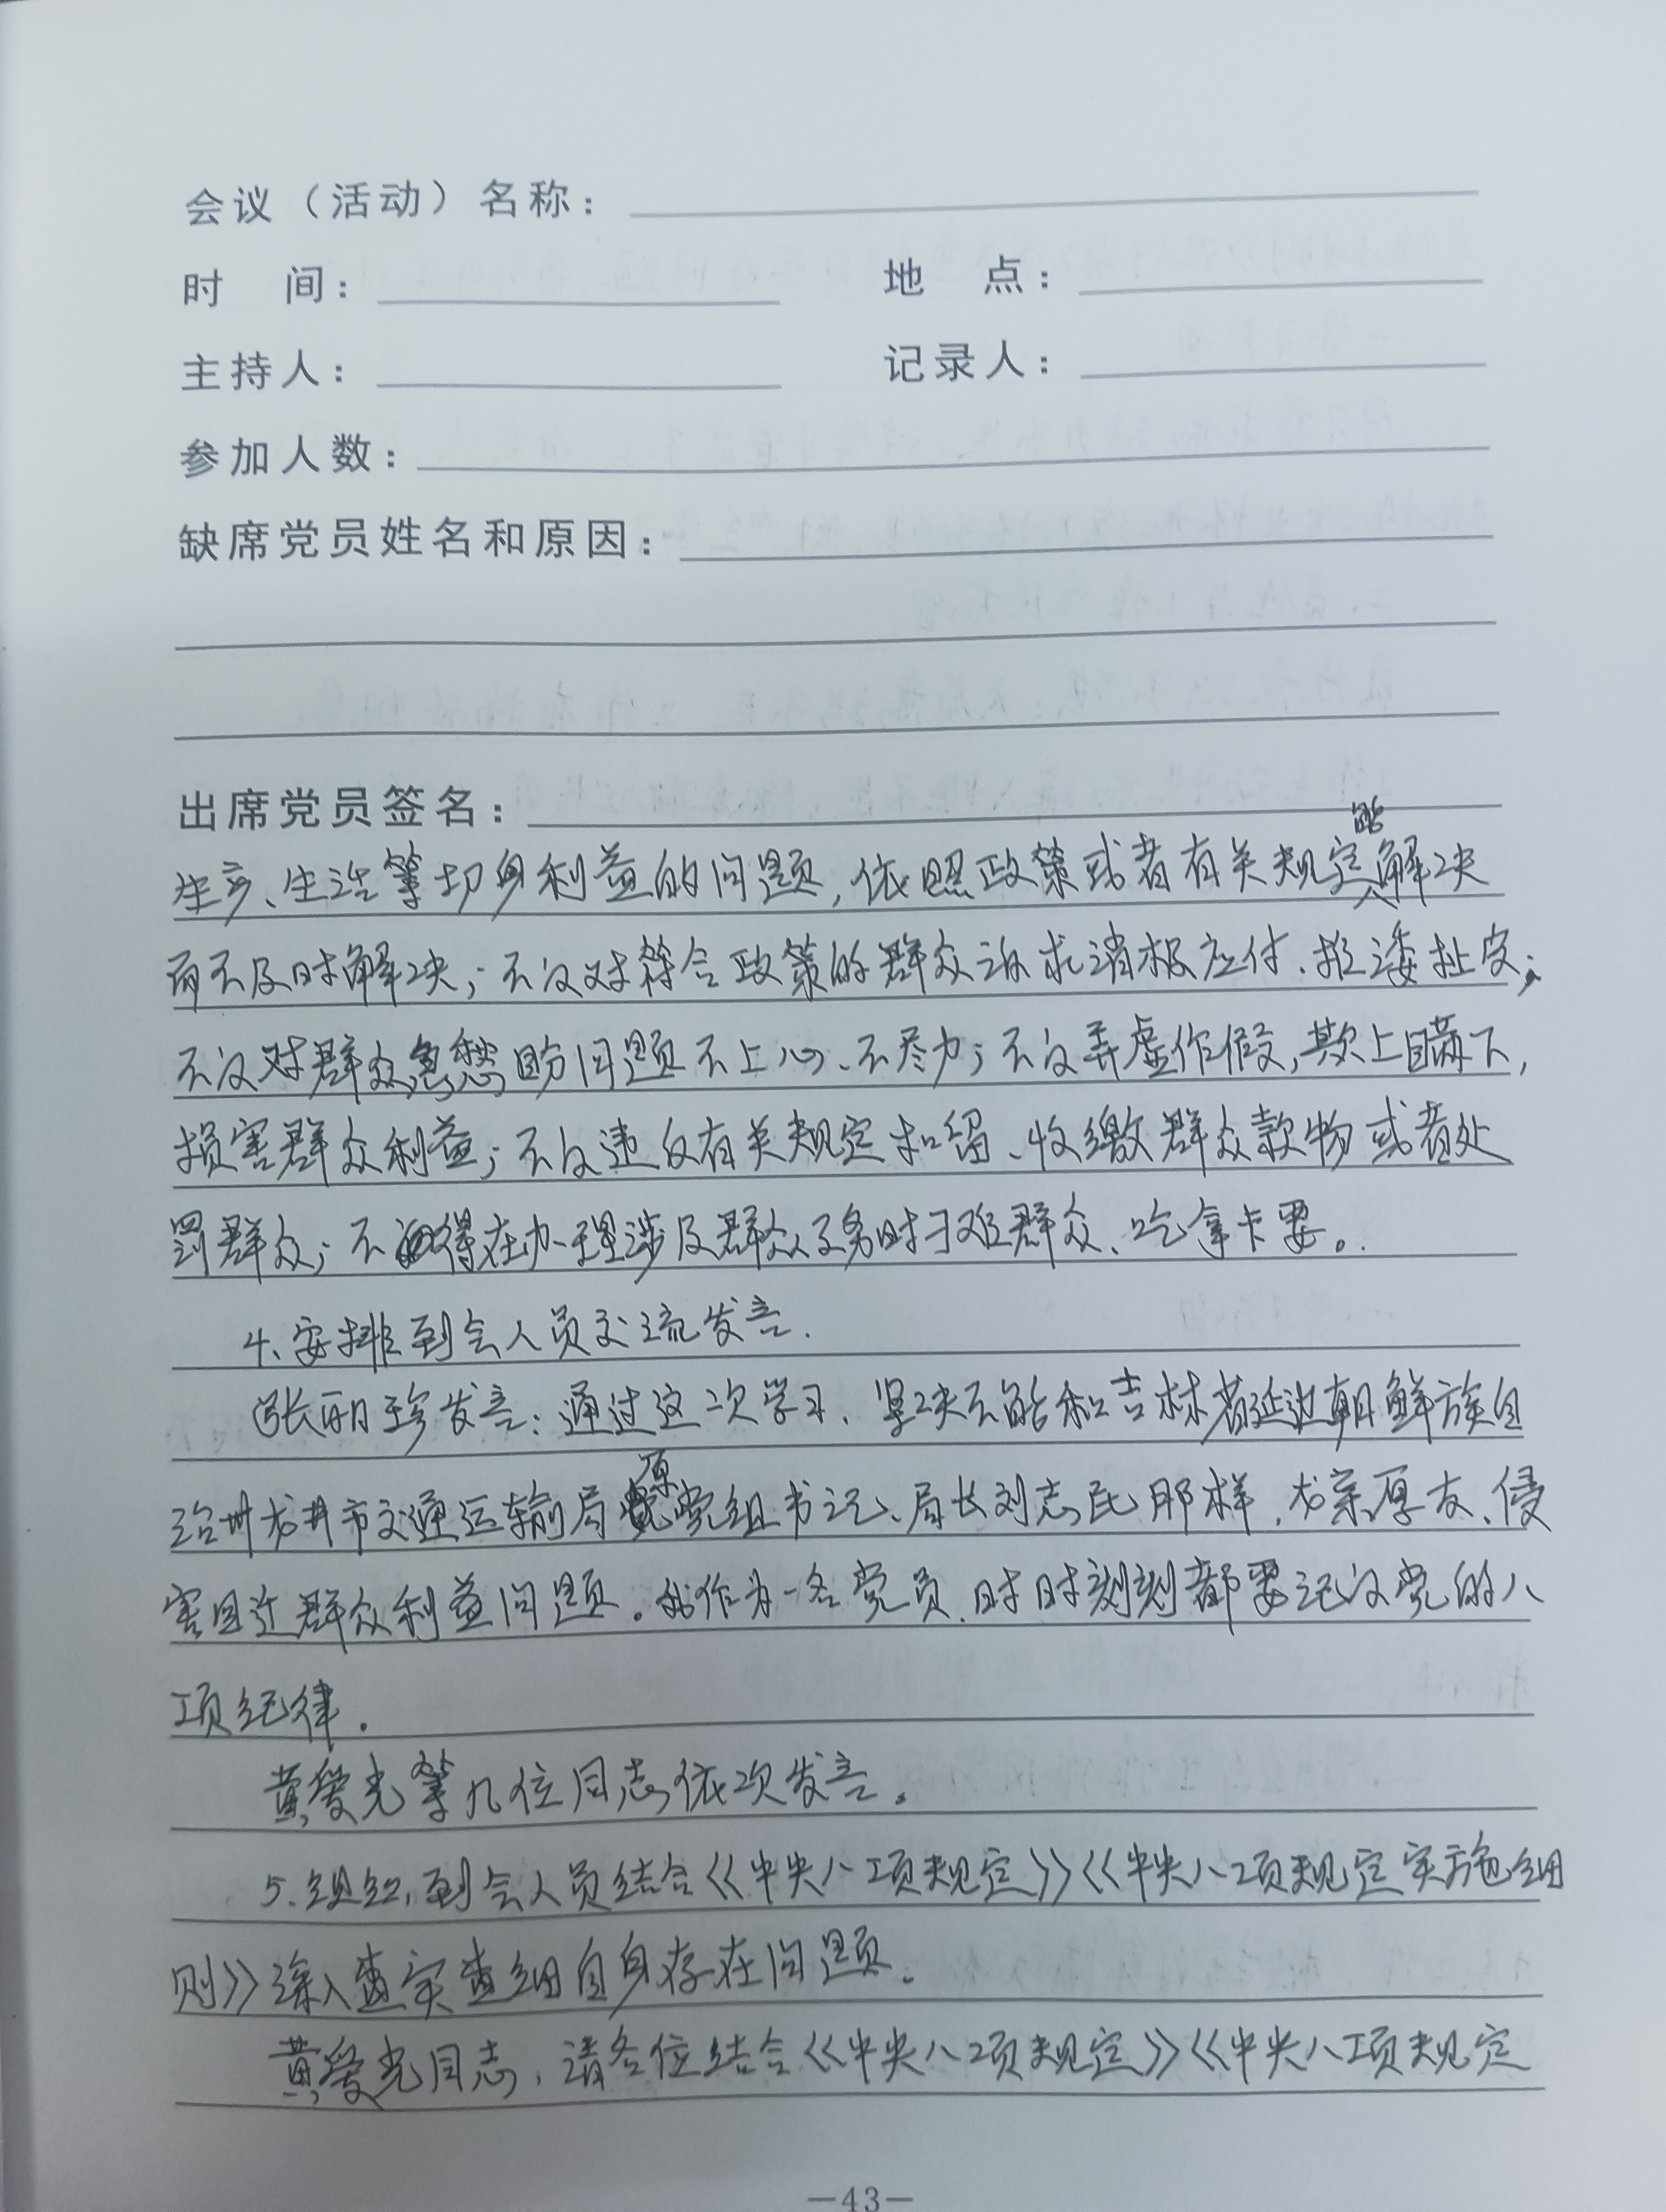 会议（活动）名称：
时　间：　地　点：
主持人：　记录人：
参加人数：
缺席党员姓名和原因：
出席党员签名：
生产、生活等切身利益的问题，依照政策或者有关规定能解决
而不及时解决；不仅对符合政策的群众诉求消极应付、推诿扯皮；
不仅对群众急愁盼问题不上心、不尽力；不仅弄虚作假，欺上瞒下，
损害群众利益；不仅违反有关规定扣留、收缴群众款物或者处
罚群众；不得在办理涉及群众事务时刁难群众、吃拿卡要。
4、安排到会人员交流发言.
张丽珍发言：通过这一次学习、坚决不能和吉林省延边朝鲜族自
治州龙井市交通运输局原党组书记、局长刘志民那样，优亲厚友、侵
害身边群众利益问题。我作为一名党员，时时刻刻都要记住党的八
项纪律.
黄爱光等几位同志依次发言。
5.组织到会人员结合《中央八项规定》《中央八项规定实施细
则》深入查实查细自身存在问题.
黄爱光同志，请各位结合《中央八项规定》《中央八项规定
—43—